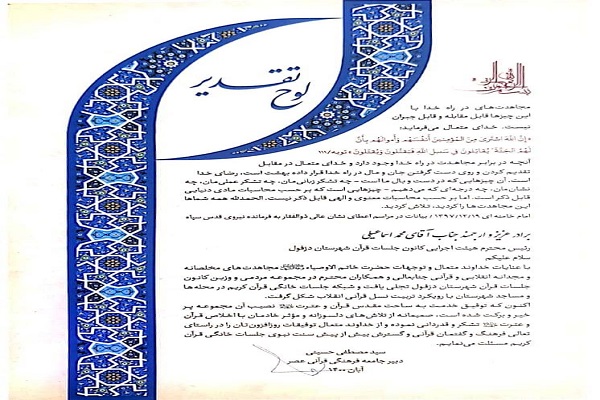 لوح تقدیر
مجاهدت‌های در راه خدا با
این چیزها قابل مقابله و قابل جبران
نیست. خدای متعال می‌فرماید:
«إِنَّ اللَّهَ اشْتَرَىٰ مِنَ الْمُؤْمِنِينَ أَنفُسَهُمْ وَأَمْوَالَهُم بِأَنَّ
لَهُمُ الْجَنَّةَ ۚ يُقَاتِلُونَ فِي سَبِيلِ اللَّهِ فَيَقْتُلُونَ وَيُقْتَلُونَ» توبه/۱۱۱
آنچه در برابر مجاهدت در راه خدا وجود دارد و خدای متعال در مقابل
تقدیم کردن و روی دست گرفتن جان و مال در راه خدا قرار داده بهشت است، رضای خدا
است. آن چیزهایی که در دست و بال ما است - چه تشکر زبانی‌مان، چه تشکر عملی‌مان، چه
نشان‌مان، چه درجه‌ای که می‌دهیم - چیزهایی است که بر حسب محاسبات مادی دنیایی
قابل ذکر است، اما بر حسب محاسبات معنوی و الهی قابل ذکر نیست. الحمدلله همه شماها
این مجاهدت‌ها را کردید، تلاش کردید.
امام خامنه ای ۱۳۹۷/۱۲/۱۹ / بیانات در مراسم اعطای نشان عالی ذوالفقار به فرمانده نیروی قدس سپاه
برادر عزیز و ارجمند جناب آقای محمد اسماعیلی
رئیس محترم هیئت اجرایی کانون جلسات قرآن شهرستان دزفول
سلام علیکم
با عنایات خداوند متعال و توجهات حضرت خاتم الاوصیاء مجاهدت‌های مخلصانه
و مجدانه انقلابی و قرآنی جنابعالی و همکاران محترم در مجموعه مردمی و وزین کانون
جلسات قرآن شهرستان دزفول تجلی یافت و شبکه جلسات خانگی قرآن کریم در محله‌ها
و مساجد شهرستان با رویکرد تربیت نسل قرآنی انقلاب شکل گرفت.
اکنون که توفیق خدمت به ساحت مقدس قرآن و عترت نصیب آن مجموعه پر
خیر و برکت شده است، صمیمانه از تلاش‌های دلسوزانه و مؤثر خادمان با اخلاص قرآن
و عترت تشکر و قدردانی نموده و از خداوند متعال توفیقات روزافزون‌تان را در راستای
تعالی فرهنگ و گفتمان قرآنی و گسترش بیش از پیش سنت نبوی جلسات خانگی قرآن
کریم مسئلت می‌نمایم.
سید مصطفی حسینی
دبیر جامعه فرهنگی قرآنی عصر
آبان ۱۴۰۰